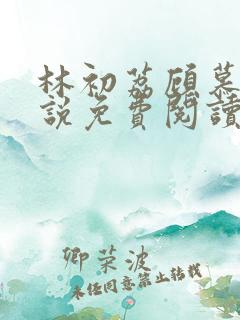 林初荔顾慕
説免費閱讀
卿荣波
未经同意禁止转载